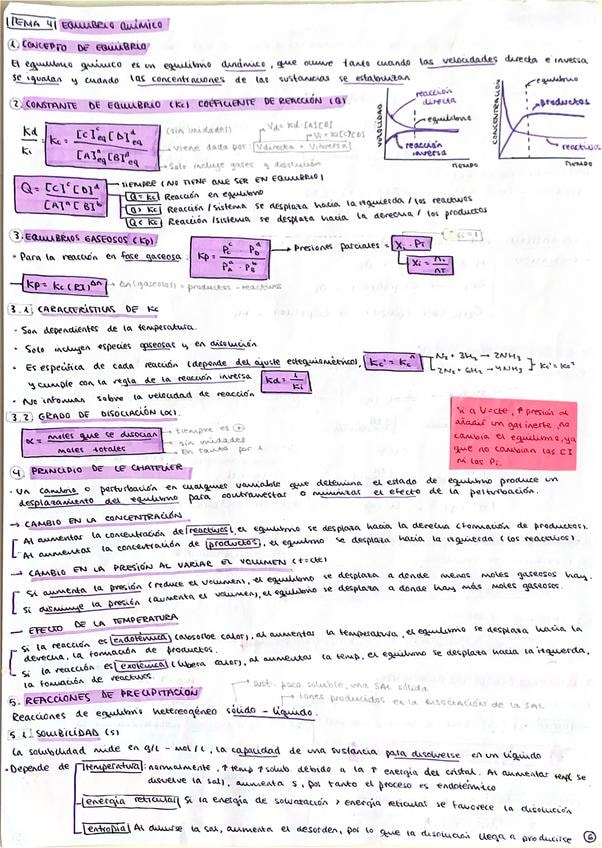 TEMA 4 EQUILIBRIO QUÍMICO
1. CONCEPTO DE EQUILIBRIO
El equilibrio químico es un equilibrio dinámico, que ocurre tanto cuando las velocidades directa e inversa
se igualan y cuando las concentraciones de las sustancias se estabilizan
2. CONSTANTE DE EQUILIBRIO (Kc) COEFICIENTE DE REACCIÓN (Q)
VELOCIDAD
reacción directa
equilibrio
reacción inversa
TIEMPO
CONCENTRACIÓN
equilibrio
productos
reactivos
TIEMPO
Kd/Ki Kc = [C]ᶜeq [D]ᵈeq / [A]ᵃeq [B]ᵇeq
(sin unidades)
Viene dada por: Vdirecta = Vinversa
Vd = Kd·[A][B]
Vi = Ki[C][D]
Solo incluye gases y disolución
Q = [C]ᶜ [D]ᵈ / [A]ᵃ [B]ᵇ
SIEMPRE (NO TIENE QUE SER EN EQUILIBRIO)
Q = Kc Reacción en equilibrio
Q > Kc Reacción / sistema se desplaza hacia la izquierda / los reactivos
Q < Kc Reacción / sistema se desplaza hacia la derecha / los productos
3. EQUILIBRIOS GASEOSOS (Kp)
· Para la reacción en fase gaseosa: Kp = Pcᶜ · PDᵈ / PAᵃ · PBᵇ → Presiones parciales = Xi · PT
Xi = ni/nT
Kp = Kc (RT)^Δn → Δn (gaseosos) = productos - reactivos
3.1. CARACTERÍSTICAS DE Kc
· Son dependientes de la temperatura.
· Solo incluyen especies gaseosas y en disolución.
· Es específica de cada reacción (depende del ajuste estequiométrico), Kc' = Kcⁿ
N₂ + 3H₂ → 2NH₃
2N₂ + 6H₂ → 4NH₃
Kc' = Kc²
y cumple con la regla de la reacción inversa Kd = 1/Ki
· No informan sobre la velocidad de reacción
3.2. GRADO DE DISOCIACIÓN (α).
α = moles que se disocian / moles totales
siempre es +
sin unidades
En tanto por 1
Si a V=cte, ↑ presión al
añadir un gas inerte, no
cambia el equilibrio, ya
que no cambian las CI
ni las Pi.
4. PRINCIPIO DE LE CHATELIER
· Un cambio o perturbación en cualquier variable que determina el estado de equilibrio produce un
desplazamiento del equilibrio para contrarrestar o minimizar el efecto de la perturbación.
→ CAMBIO EN LA CONCENTRACIÓN
Al aumentar la concentración de reactivos, el equilibrio se desplaza hacia la derecha (formación de productos).
Al aumentar la concentración de productos, el equilibrio se desplaza hacia la izquierda (los reactivos).
→ CAMBIO EN LA PRESIÓN AL VARIAR EL VOLUMEN (t=cte)
Si aumenta la presión (reduce el volumen), el equilibrio se desplaza a donde menos moles gaseosos hay.
Si disminuye la presión (aumenta el volumen), el equilibrio se desplaza a donde hay más moles gaseosos.
→ EFECTO DE LA TEMPERATURA
Si la reacción es endotérmica (absorbe calor), al aumentar la temperatura, el equilibrio se desplaza hacia la
derecha, la formación de productos.
Si la reacción es exotérmica (libera calor), al aumentar la temp, el equilibrio se desplaza hacia la izquierda,
la formación de reactivos.
5. REACCIONES DE PRECIPITACIÓN
sust. poco soluble, una SAL sólida
iones producidos en la DISOCIACIÓN de la SAL
Reacciones de equilibrio heterogéneo sólido - líquido.
5.1. SOLUBILIDAD (S)
La solubilidad mide en g/L - mol/L, la capacidad de una sustancia para disolverse en un líquido
· Depende de temperatura: normalmente, ↑ temp ↑ solub. debido a la ↑ energía del cristal. Al aumentar temp se
disuelve la sal, aumenta S, por tanto el proceso es endotérmico
energía reticular Si la energía de solvatación > energía reticular se favorece la disolución
entropía Al diluirse la sal, aumenta el desorden, por lo que la disolución llega a producirse
6